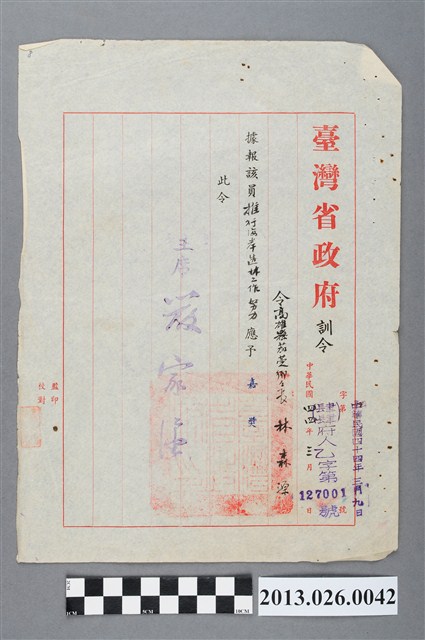 臺灣省政府訓令
中華民國四十四年三月九日
肆肆府人乙字第127001號
字第 號
中華民國四四年三月 日
令高雄縣茄萣鄉鄉長 林森源
據報該員推行海岸造林工作努力應予嘉獎
此令
主席 嚴家淦
監印
校對
1CM
5CM
10CM
2013.026.0042